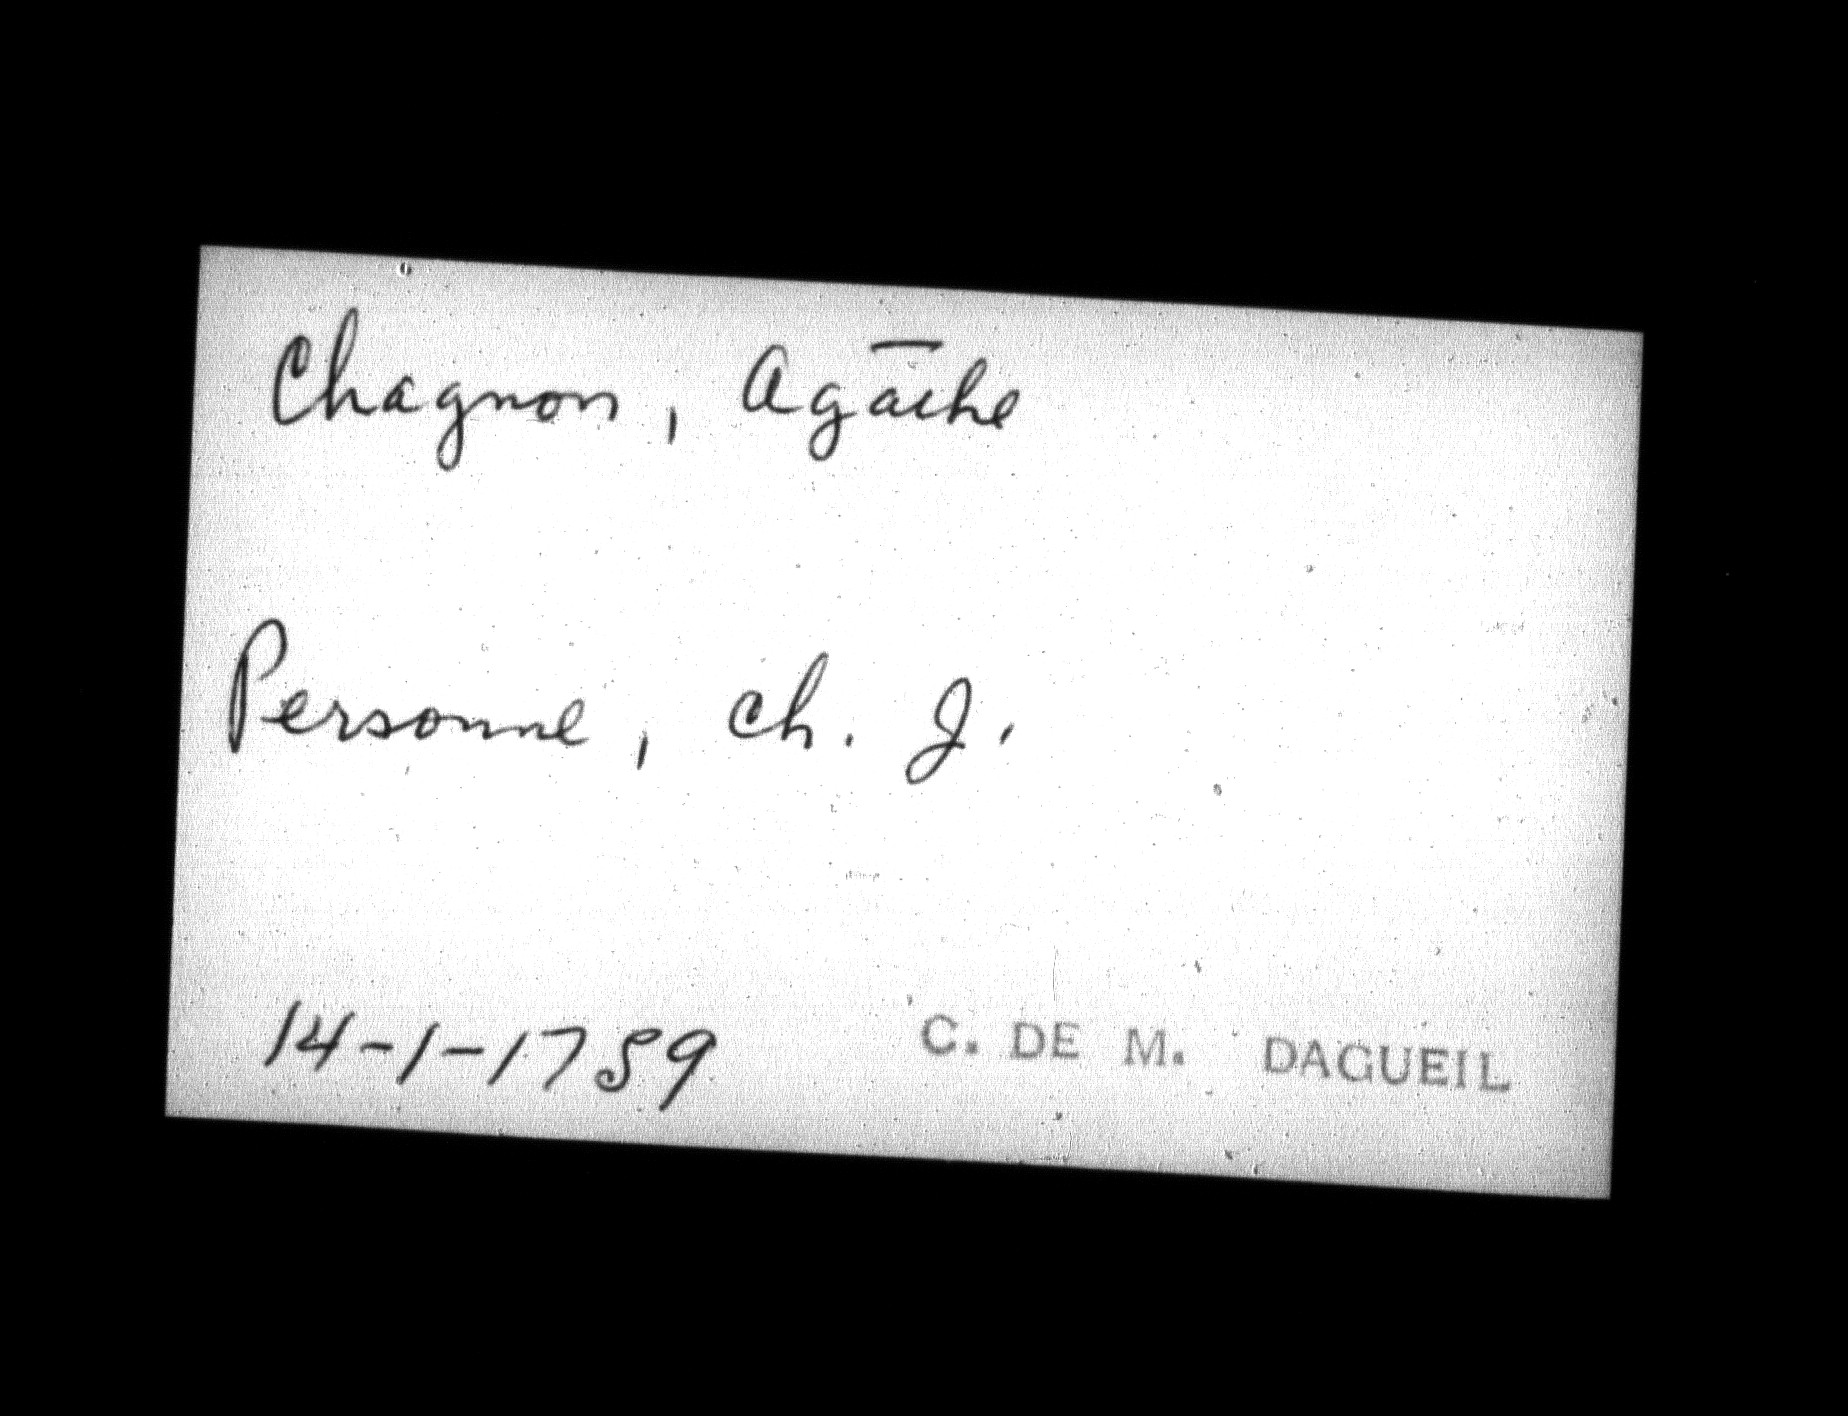 Chagnon, Agathe
Personne, ch. J.
14-1-1759
C. DE M. DAGUEIL